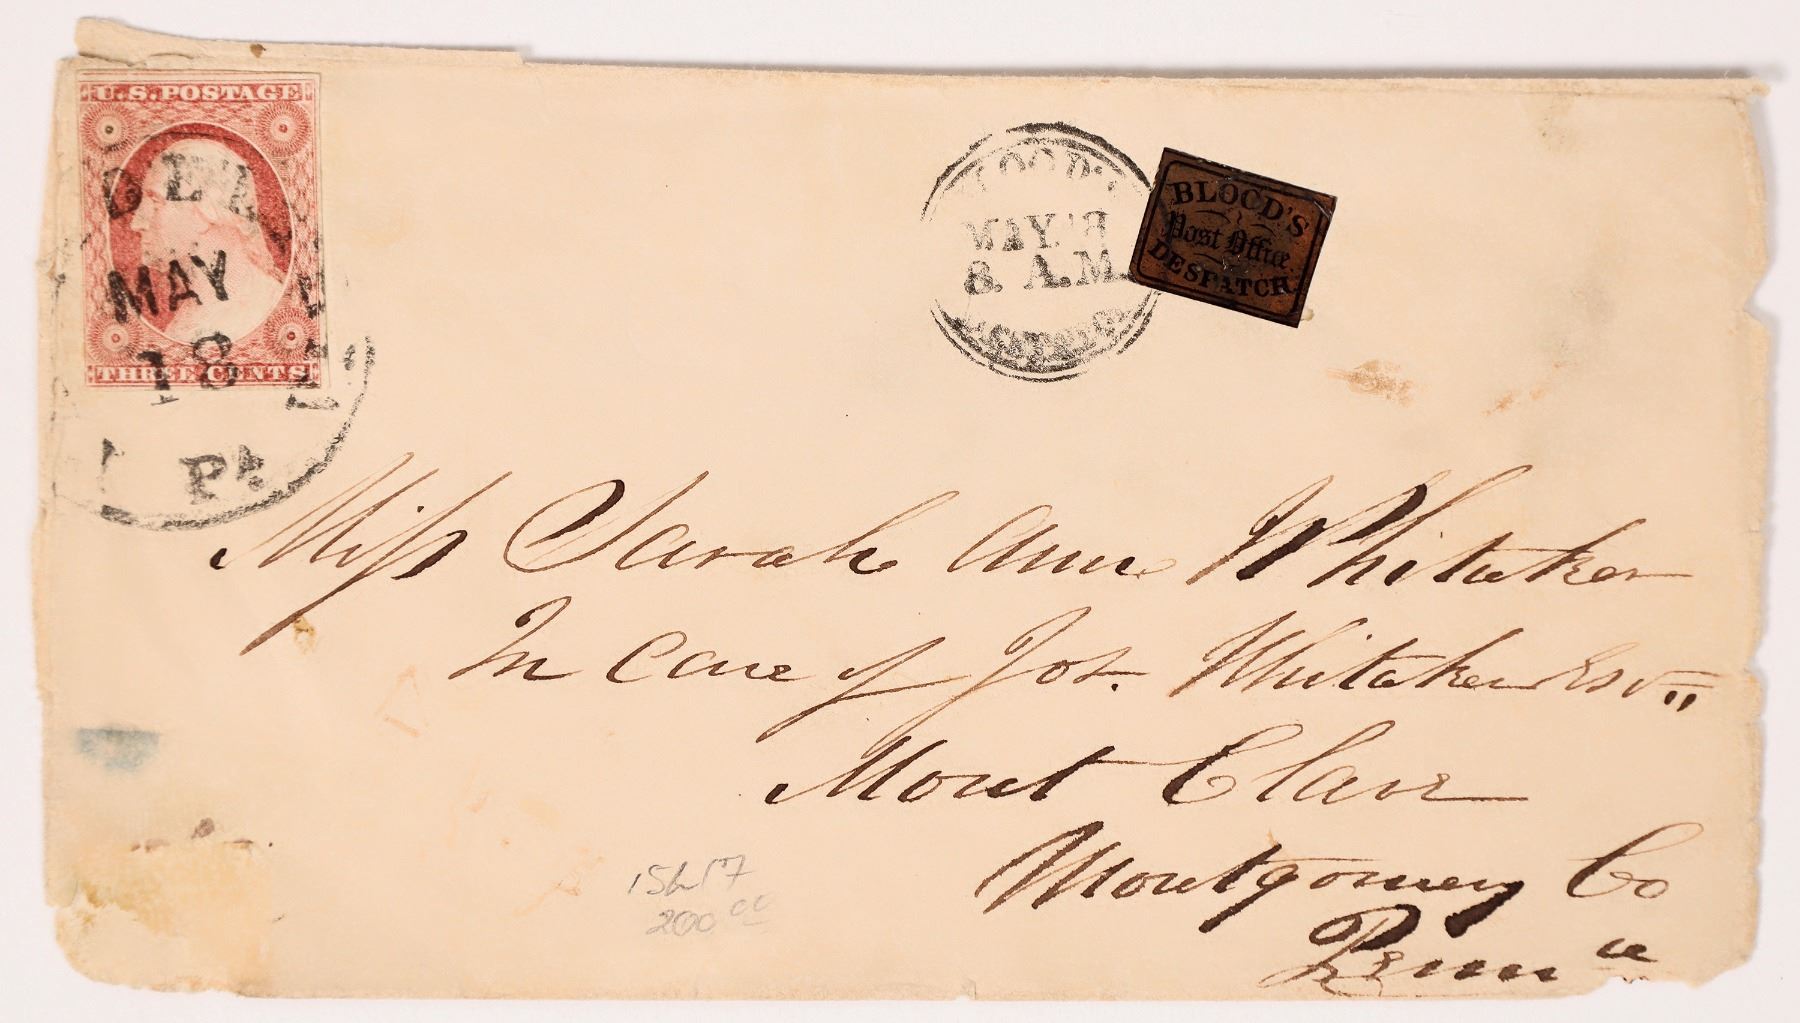 U.S. POSTAGE
MAY
18
THREE CENTS
Pa
MAY 18
8. A.M.
BLOOD'S
Post Office
DESPATCH.
Miss Sarah Ann Whitaker
In Care of Jos. Whitaker Esqr
Mont Clare
Montgomery Co
Penna
15L17
200 00